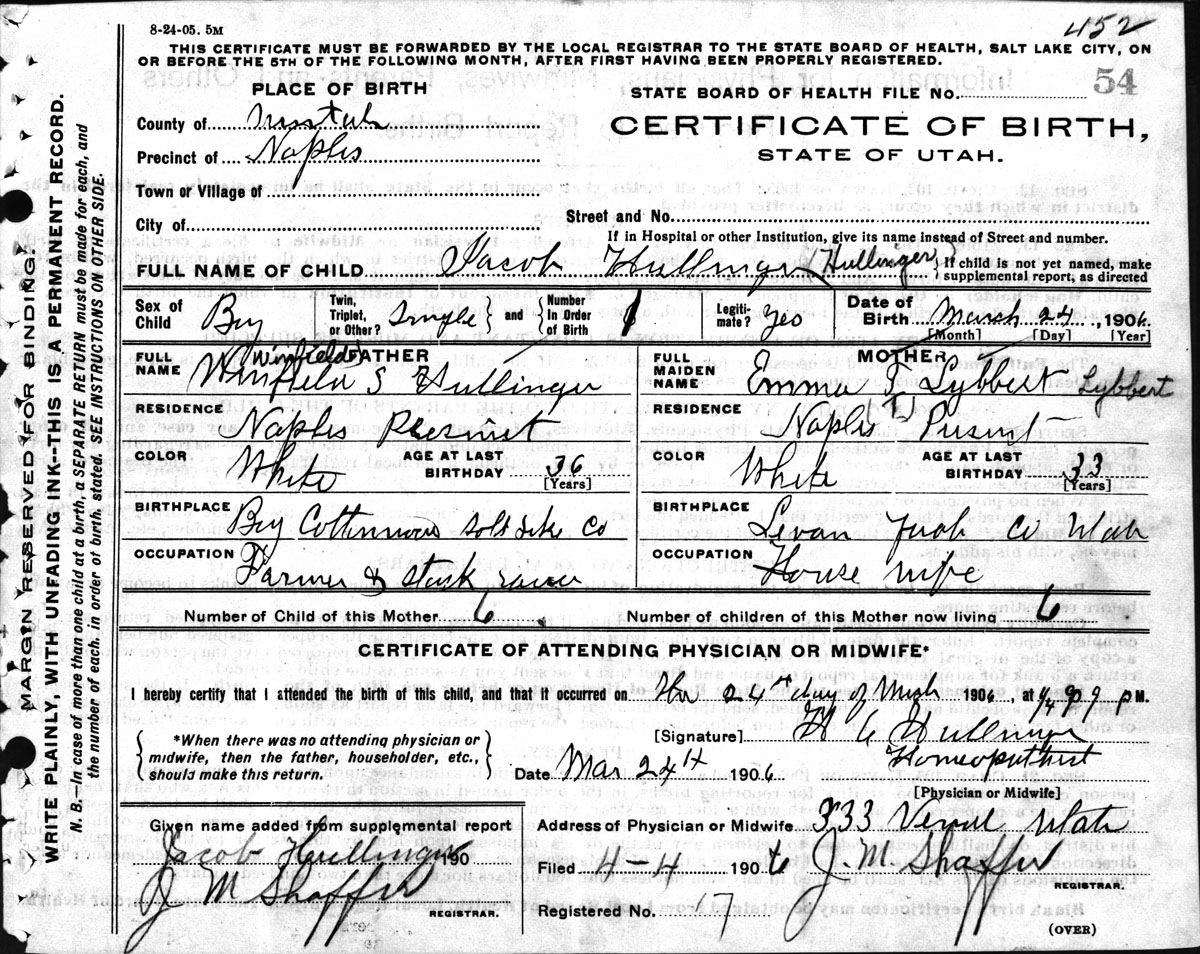 8-24-05. 5M
452
THIS CERTIFICATE MUST BE FORWARDED BY THE LOCAL REGISTRAR TO THE STATE BOARD OF HEALTH, SALT LAKE CITY, ON
OR BEFORE THE 5TH OF THE FOLLOWING MONTH, AFTER FIRST HAVING BEEN PROPERLY REGISTERED.
PLACE OF BIRTH
STATE BOARD OF HEALTH FILE No. 54
County of
Precinct of Naples
CERTIFICATE OF BIRTH,
STATE OF UTAH.
Town or Village of
City of
Street and No.
If in Hospital or other Institution, give its name instead of Street and number.
FULL NAME OF CHILD Jacob Hullinger Hullinger { If child is not yet named, make
supplemental report, as directed
Sex of Child Boy Twin, Triplet, or Other? Single } and { Number In Order of Birth 1 Legitimate? Yes Date of Birth March 24, 1906
[Month] [Day] [Year]
FATHER
MOTHER
FULL NAME Winfield S Hullinger Winfield
FULL MAIDEN NAME Emma F Lybbert Lybbert
RESIDENCE Naples
RESIDENCE Naples
COLOR White AGE AT LAST BIRTHDAY 36 [Years]
COLOR White AGE AT LAST BIRTHDAY 33 [Years]
BIRTHPLACE Big Co
BIRTHPLACE Levan Juab Co Utah
OCCUPATION Farmer & stock
OCCUPATION House wife
Number of Child of this Mother 6
Number of children of this Mother now living 6
CERTIFICATE OF ATTENDING PHYSICIAN OR MIDWIFE*
I hereby certify that I attended the birth of this child, and that it occurred on the 24th day of March 1906, at 9 PM.
{ *When there was no attending physician or
midwife, then the father, householder, etc.,
should make this return. }
[Signature] H C Hullinger
Homeopathist
Date Mar 24th 1906
[Physician or Midwife]
Given name added from supplemental report
Jacob Hullinger 190
J M Shaffer
REGISTRAR.
Address of Physician or Midwife 333 Vernal Utah
Filed 4-4 1906 J. M. Shaffer
REGISTRAR.
Registered No. 17
(OVER)
MARGIN RESERVED FOR BINDING.
WRITE PLAINLY, WITH UNFADING INK--THIS IS A PERMANENT RECORD.
N. B.--In case of more than one child at a birth, a SEPARATE RETURN must be made for each, and
the number of each, in order of birth, stated. SEE INSTRUCTIONS ON OTHER SIDE.